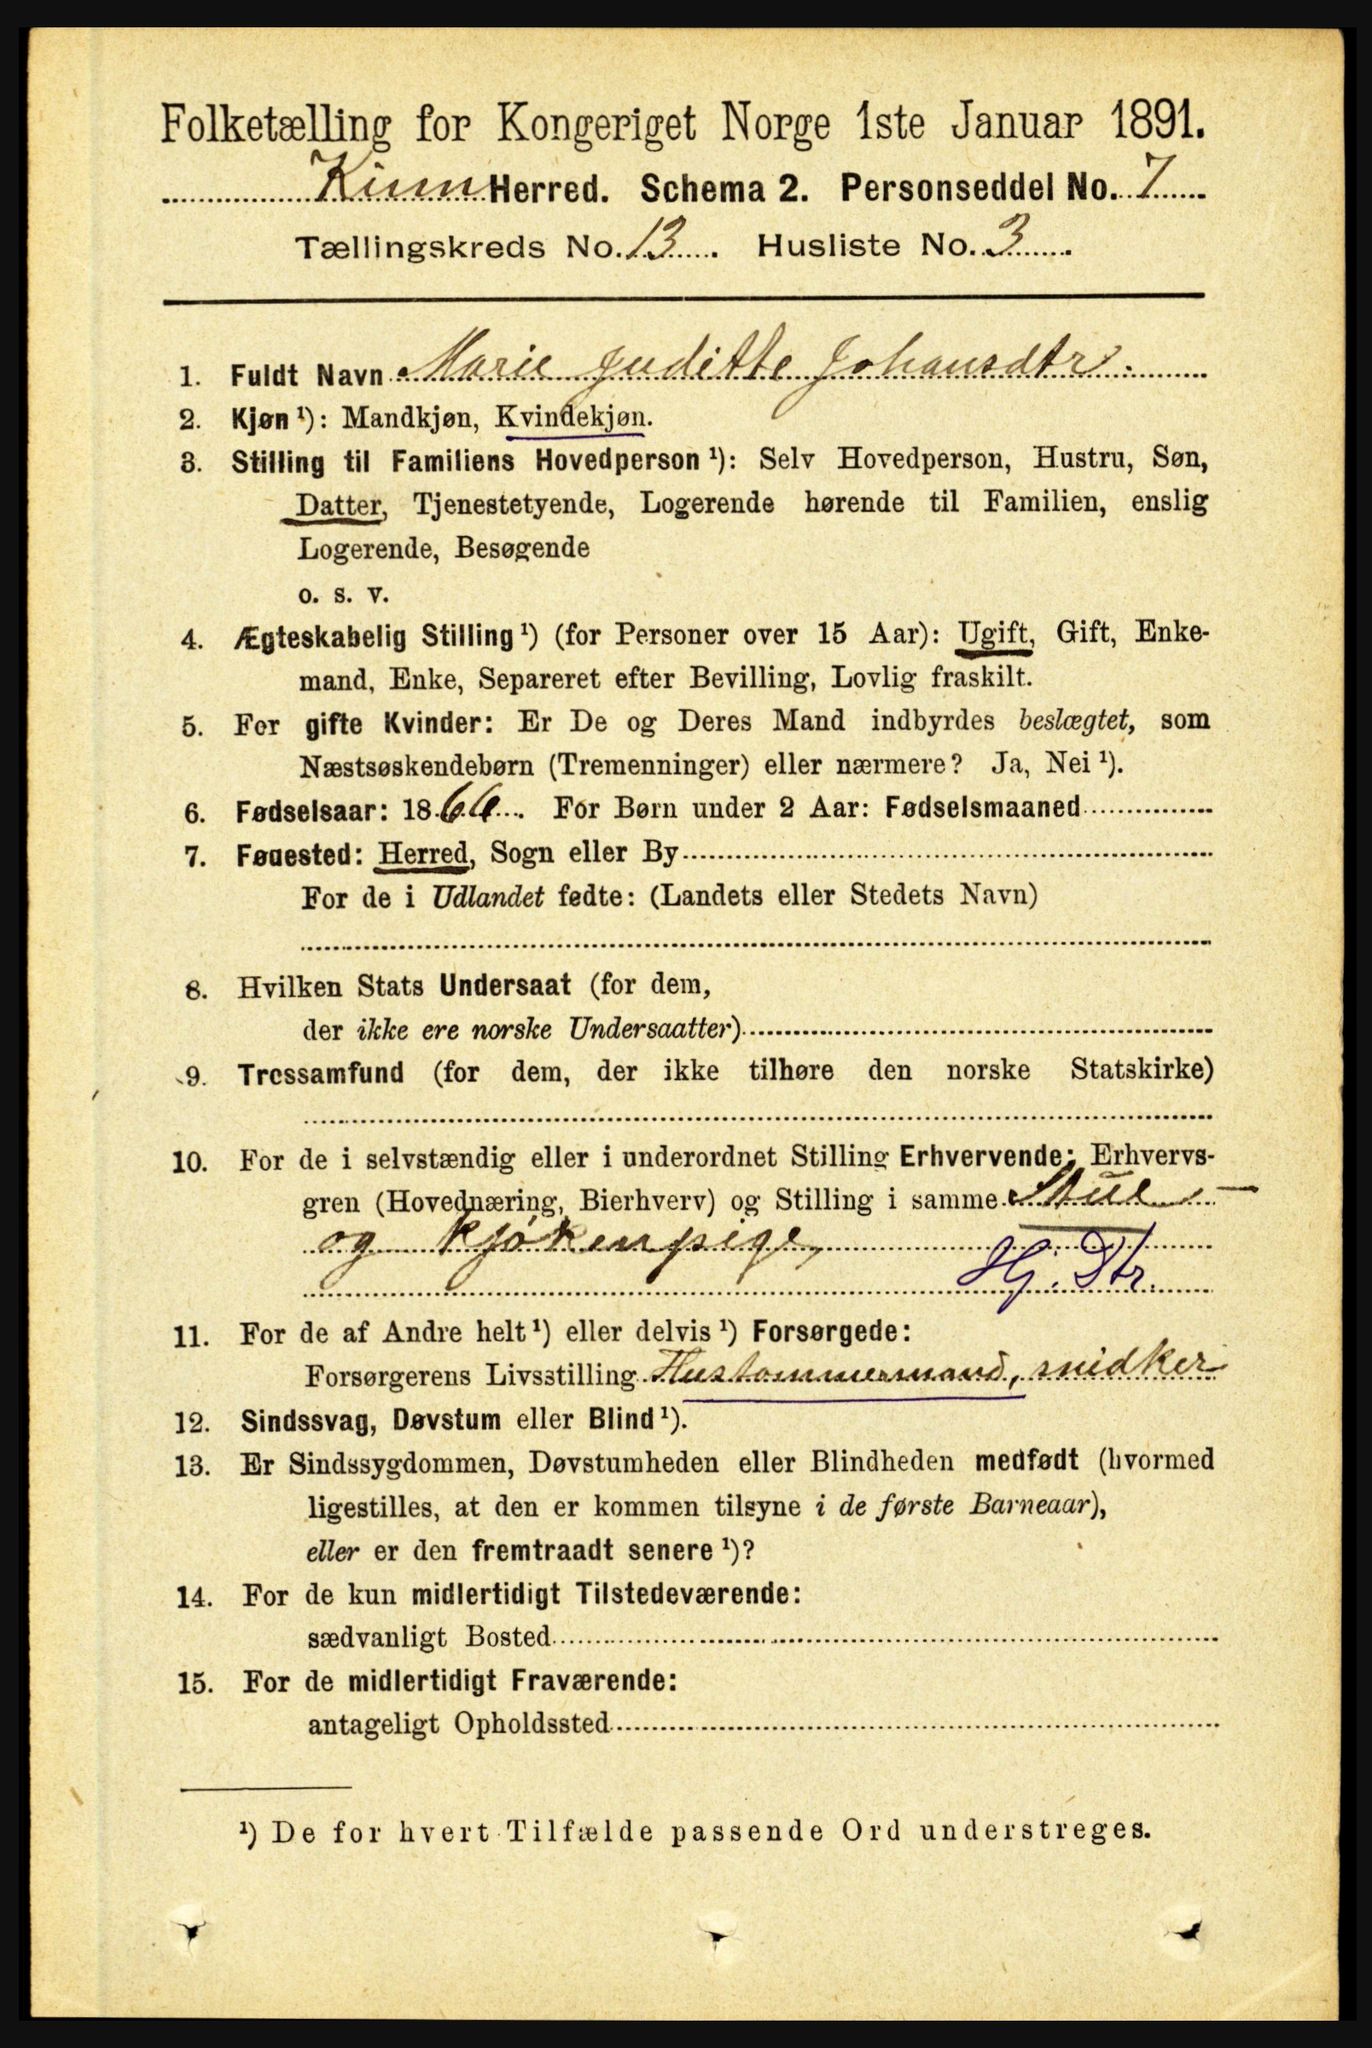 Folketælling for Kongeriget Norge 1ste Januar 1891.
Kinn Herred. Schema 2. Personseddel No. 7
Tællingskreds No. 13. Husliste No. 3
1. Fuldt Navn Marie Juditte Johansdtr.
2. Kjøn ¹): Mandkjøn, Kvindekjøn.
3. Stilling til Familiens Hovedperson ¹): Selv Hovedperson, Hustru, Søn,
Datter, Tjenestetyende, Logerende hørende til Familien, enslig
Logerende, Besøgende
o. s. v.
4. Ægteskabelig Stilling ¹) (for Personer over 15 Aar): Ugift, Gift, Enke-
mand, Enke, Separeret efter Bevilling, Lovlig fraskilt.
5. For gifte Kvinder: Er De og Deres Mand indbyrdes beslægtet, som
Næstsøskendebørn (Tremenninger) eller nærmere? Ja, Nei ¹).
6. Fødselsaar: 1866. For Børn under 2 Aar: Fødselsmaaned
7. Føuested: Herred, Sogn eller By
For de i Udlandet fødte: (Landets eller Stedets Navn)
8. Hvilken Stats Undersaat (for dem,
der ikke ere norske Undersaatter)
9. Trossamfund (for dem, der ikke tilhøre den norske Statskirke)
10. For de i selvstændig eller i underordnet Stilling Erhvervende: Erhvervs-
gren (Hovednæring, Bierhverv) og Stilling i samme Stue-
og kjøkenpige,
Hj. Dtr.
11. For de af Andre helt ¹) eller delvis ¹) Forsørgede:
Forsørgerens Livsstilling Hustømmermand, snidker
12. Sindssvag, Døvstum eller Blind ¹).
13. Er Sindssygdommen, Døvstumheden eller Blindheden medfødt (hvormed
ligestilles, at den er kommen tilsyne i de første Barneaar),
eller er den fremtraadt senere ¹)?
14. For de kun midlertidigt Tilstedeværende:
sædvanligt Bosted
15. For de midlertidigt Fraværende:
antageligt Opholdssted
¹) De for hvert Tilfælde passende Ord understreges.